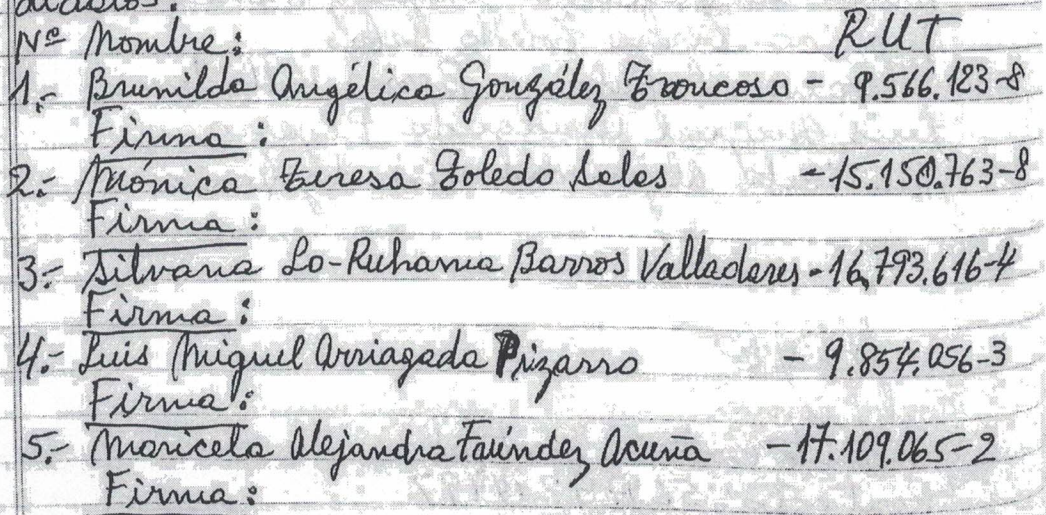 Nº Nombre: RUT
1.- Brunilda Angélica González Troncoso - 9.566.123-8
Firma:
2.- Mónica Teresa Toledo Salas - 15.150.763-8
Firma:
3.- Silvana Lo-Ruhama Barros Valladares - 16,793.616-4
Firma:
4.- Luis Miguel Arriagada Pizarro - 9.854.056-3
Firma:
5.- Maricela Alejandra Faúndez Acuña - 17.109.065-2
Firma: